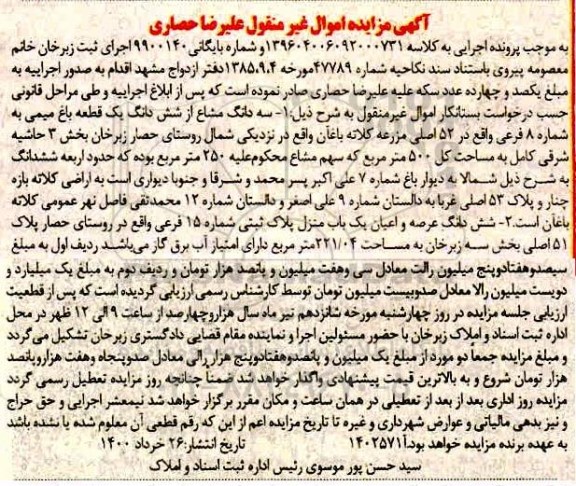 آگهی مزایده اموال غیر منقول علیرضا حصاری
به موجب پرونده اجرایی به کلاسه ۱۳۹۶۰۴۰۰۶۰۹۲۰۰۰۷۳۱و شماره بایگانی۹۹۰۰۱۴۰ اجرای ثبت زبرخان خانم
معصومه پیروی باستناد سند نکاحیه شماره ۴۷۷۸۹مورخه ۱۳۸۵.۹.۴دفتر ازدواج مشهد اقدام به صدور اجراییه به
مبلغ یکصد و چهارده عدد سکه علیه علیرضا حصاری صادر نموده است که پس از ابلاغ اجراییه و طی مراحل قانونی
حسب درخواست بستانکار اموال غیرمنقول به شرح ذیل:۱- سه دانگ مشاع از شش دانگ یک قطعه باغ میمی به
شماره ۸ فرعی واقع در ۵۲ اصلی مزرعه کلاته باغآن واقع در نزدیکی شمال روستای حصار زبرخان بخش ۳ حاشیه
شرقی کامل به مساحت کل ۵۰۰ متر مربع که سهم مشاع محکوم‌علیه ۲۵۰ متر مربع بوده که حدود اربعه ششدانگ
به شرح ذیل شمالا به دیوار باغ شماره ۷ علی اکبر پسر محمد و شرقا و جنوبا دیواری است به اراضی کلاته بازه
چنار و پلاک ۵۳ اصلی غربا به دالستان شماره ۹ علی اصغر و دالستان شماره ۱۲ محمدتقی فاصل نهر عمومی کلاته
باغان است.۲- شش دانگ عرصه و اعیان یک باب منزل پلاک ثبتی شماره ۱۵ فرعی واقع در روستای حصار پلاک
۵۱ اصلی بخش سه زبرخان به مساحت ۲۲۱/۰۴متر مربع دارای امتیاز آب برق گاز می‌باشد ردیف اول به مبلغ
سیصدوهفتادوپنج میلیون رالت معادل سی وهفت میلیون و پانصد هزار تومان و ردیف دوم به مبلغ یک میلیارد و
دویست میلیون رالا معادل صدوبیست میلیون تومان توسط کارشناس رسمی ارزیابی گردیده است که پس از قطعیت
ارزیابی جلسه مزایده در روز چهارشنبه مورخه شانزدهم تیر ماه سال هزاروچهارصد از ساعت ۹ الی ۱۲ ظهر در محل
اداره ثبت اسناد و املاک زبرخان با حضور مسئولین اجرا و نماینده مقام قضایی دادگستری زبرخان تشکیل می‌گردد
و مبلغ مزایده جمعاً دو مورد از مبلغ یک میلیون و پانصدوهفتادوپنج هزار ریالی معادل صدوپنجاه وهفت هزاروپانصد
هزار تومان شروع و به بالاترین قیمت پیشنهادی واگذار خواهد شد ضمناً چنانچه روز مزایده تعطیل رسمی گردد
مزایده روز اداری بعد از بعد از تعطیلی در همان ساعت و مکان مقرر برگزار خواهد شد نیمعشر اجرایی و حق حراج
و نیز بدهی مالیاتی و عوارض شهرداری و غیره تا تاریخ مزایده اعم از این که رقم قطعی آن معلوم شده یا نشده باشد
به عهده برنده مزایده خواهد بود.آ۱۴۰۲۵۷۱ تاریخ انتشار:۲۶ خرداد ۱۴۰۰
سید حسن پور موسوی رئیس اداره ثبت اسناد و املاک